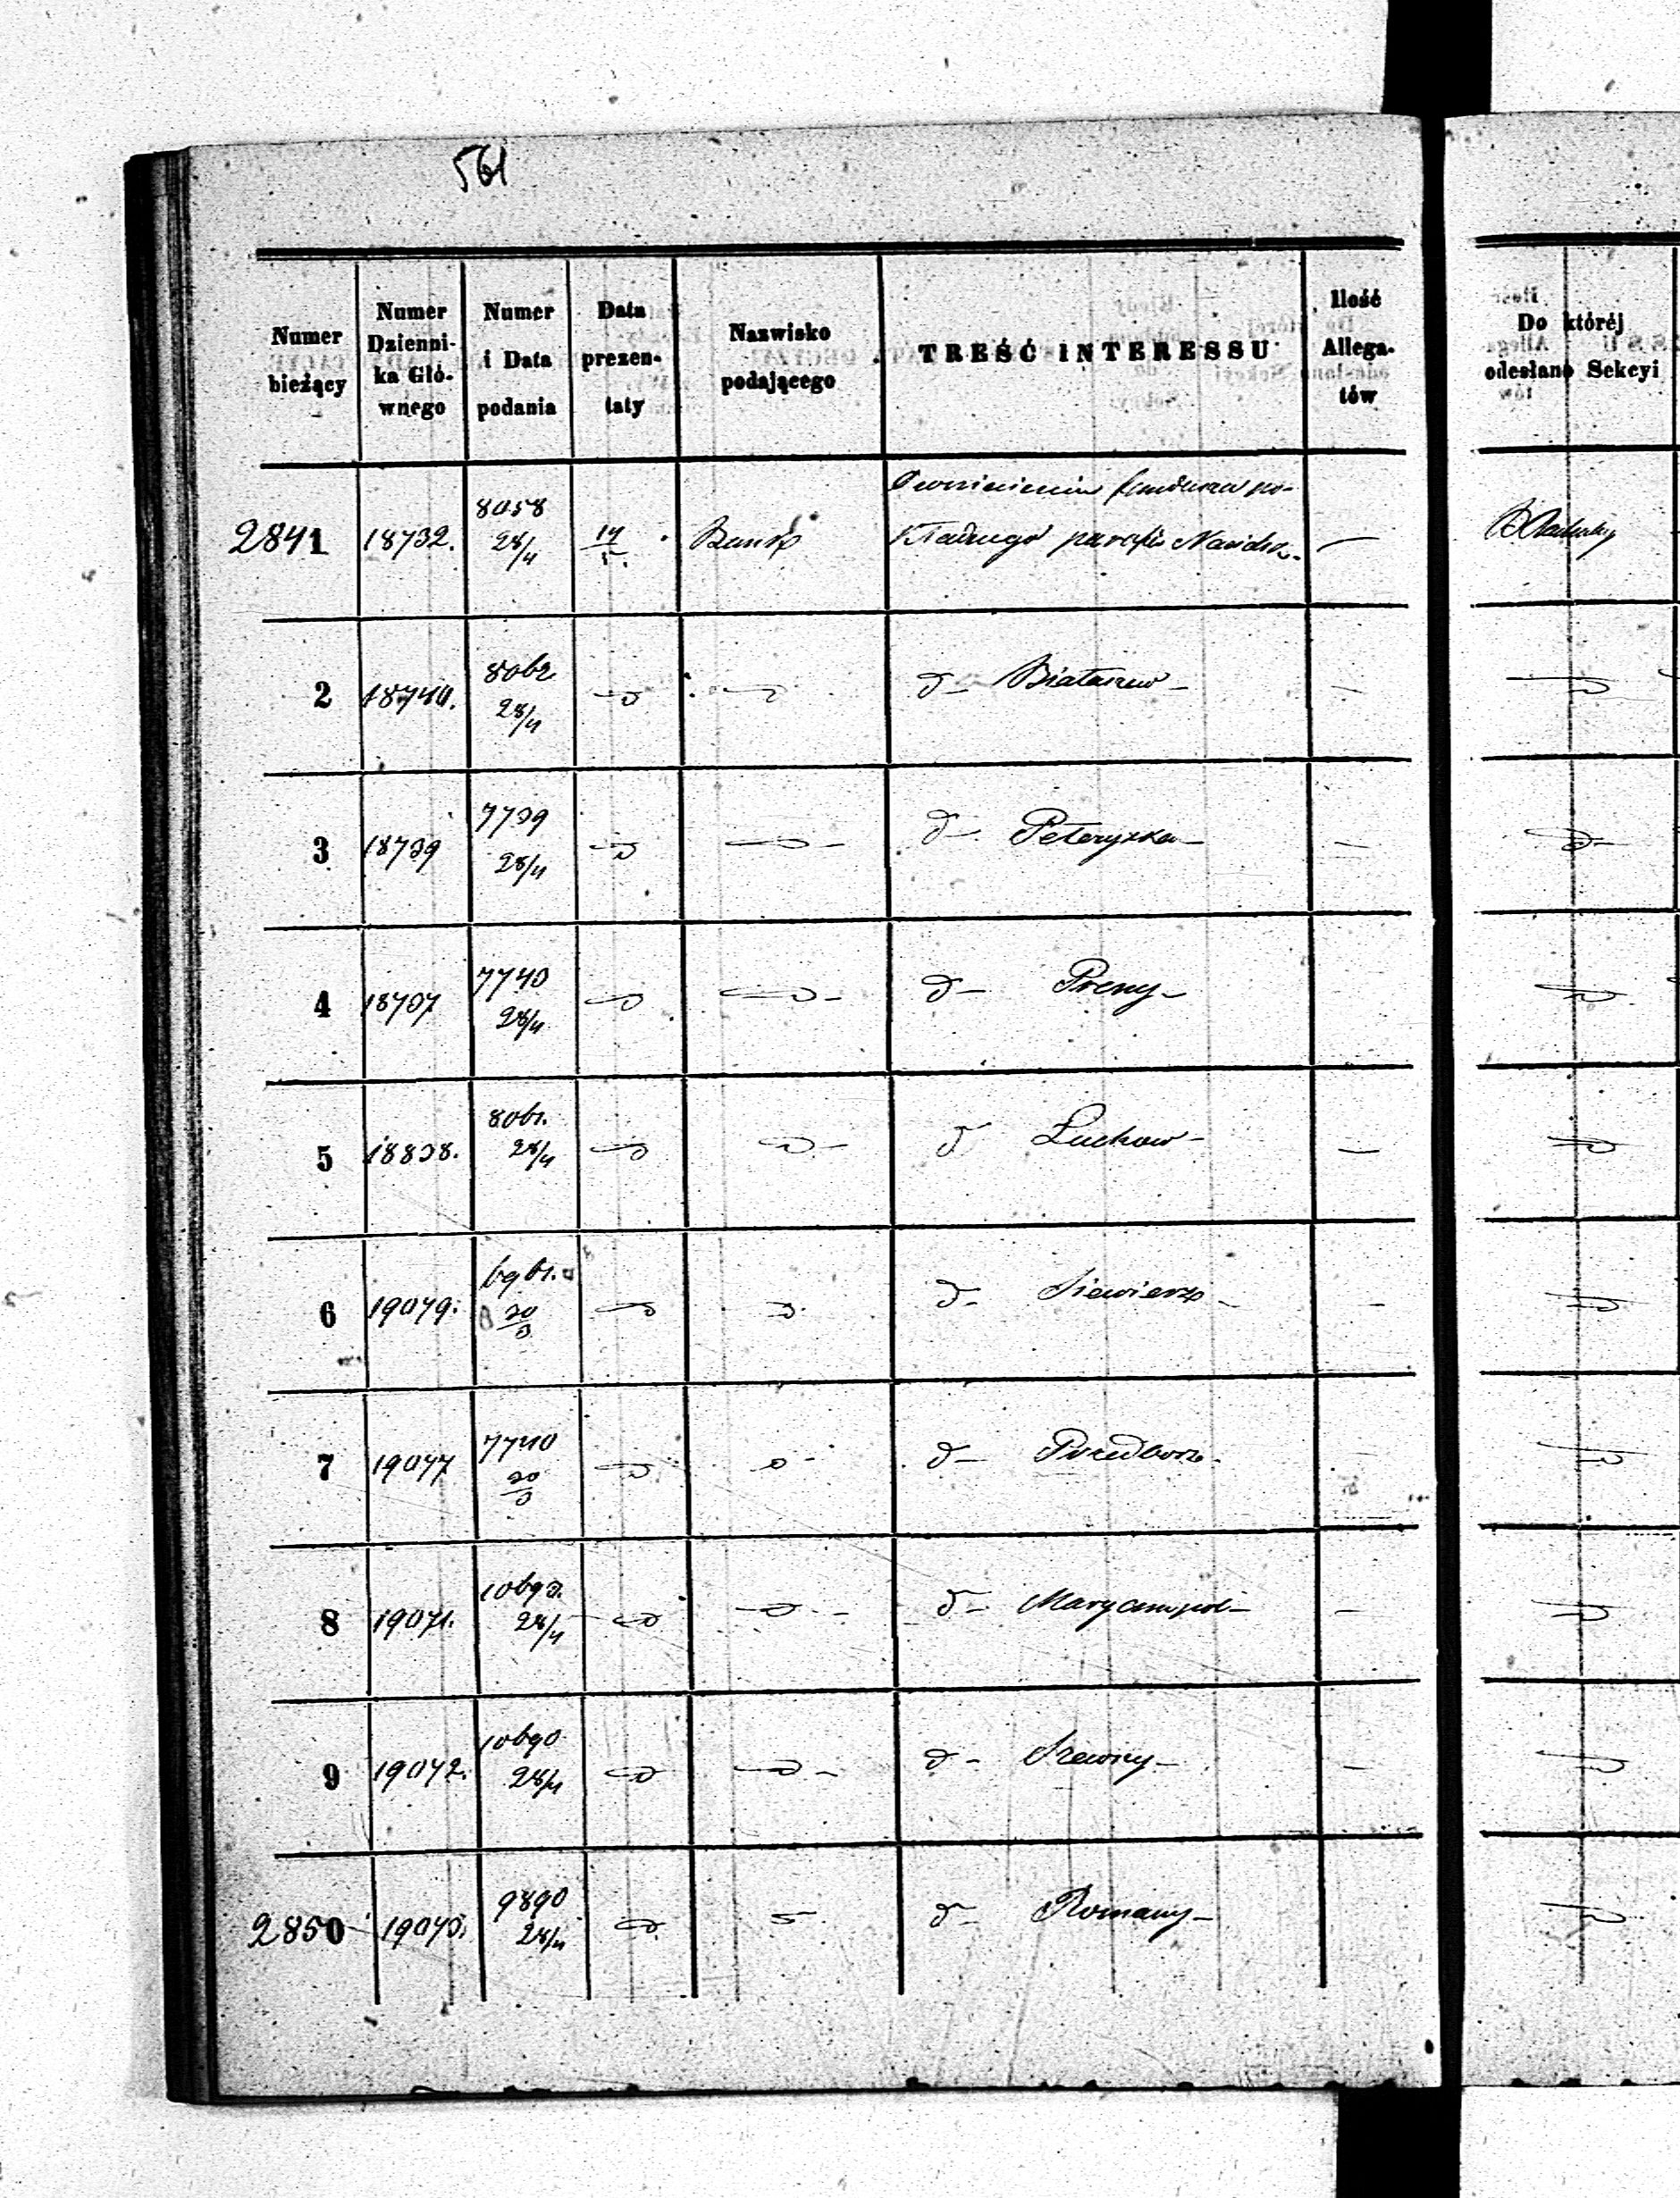 561
Numer bieżący
Numer Dzienni- ka Głó- wnego
Numer i Data podania
Data prezen- taty
Nazwisko podającego
TREŚĆ INTERESSU
Ilość Allega- tów
Do której odesłano Sekcyi
2841 18732. 8058 28/4 14/5. Bank
kładnego parafii
2 18740. 8062 28/4 d- Białaszew-
3 18739 7739 28/4 d- Peteryszka-
4 18707 7740 28/4 d- Preny-
5 18838. 8061. 28/4 d Luchow-
6 19079. 6961. 20/3 d- Siewierz-
7 19077 7740 20/3 d- Przedborz-
8 19071. 10693. 28/4 d- Maryampol-
9 19072. 10690 28/4 d-
2850 9890 28/4 d- Romany-